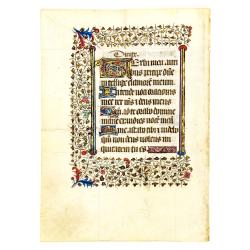 Verba mea auri
bus percipe dñe
intellige clamorem meum.
Intende voci orationis
mee rex ms z deus meus
Qm ad te orabo domine
mane exaudies vocem meã
Mane astabo tibi z videbo
qm non deus volens ini
quitatem tu es